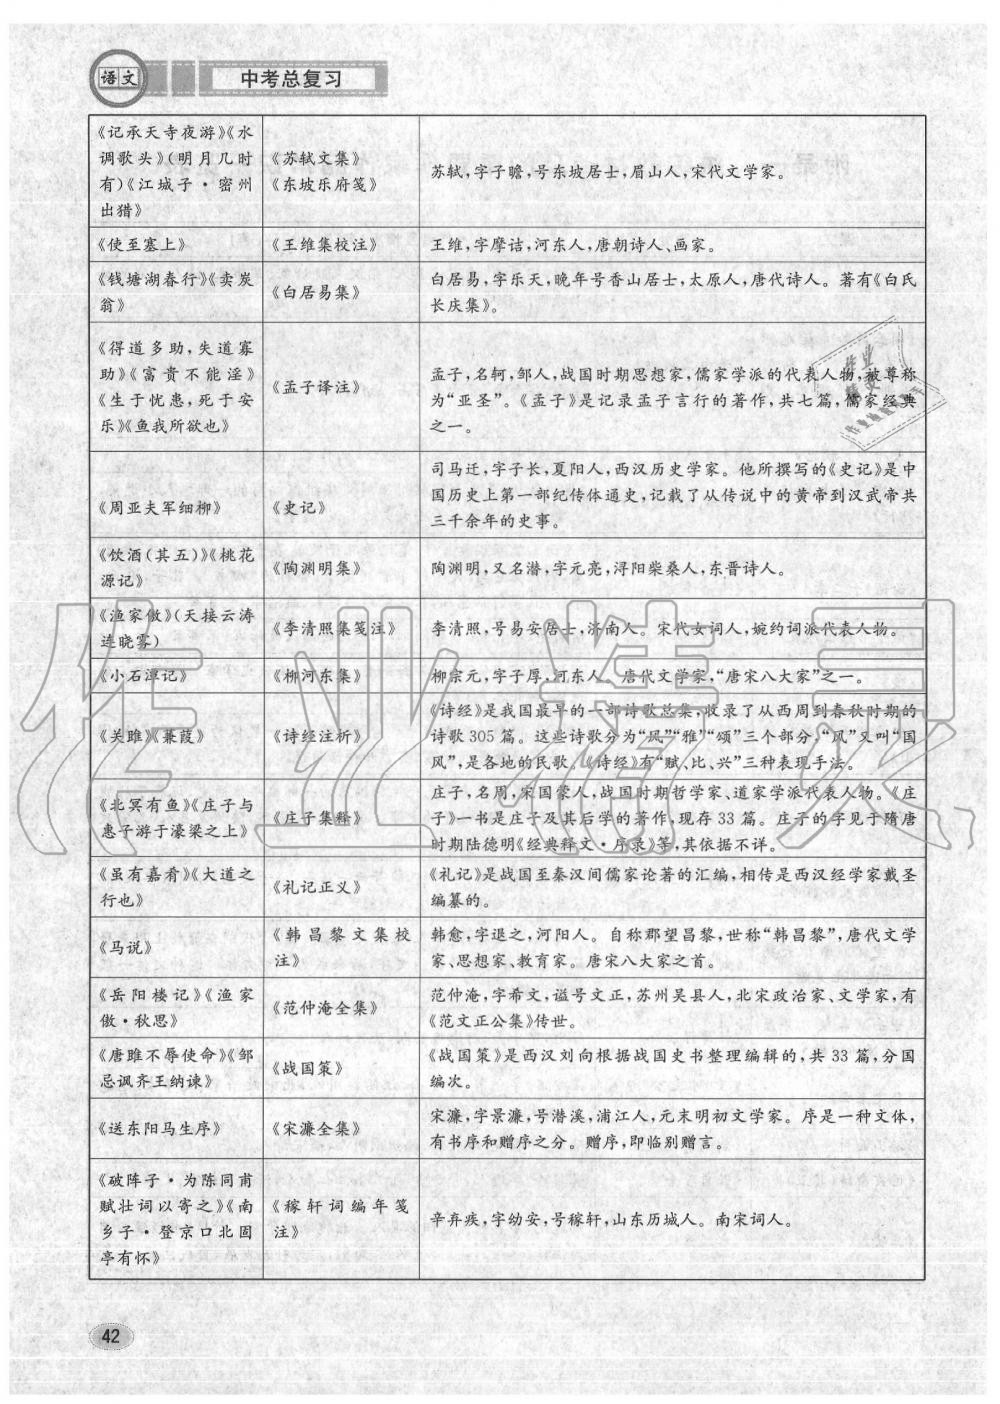 语文
中考总复习
《记承天寺夜游》《水
调歌头》(明月几时
有)《江城子·密州
出猎》
《苏轼文集》
《东坡乐府笺》
苏轼,字子瞻,号东坡居士,眉山人,宋代文学家。
《使至塞上》
《王维集校注》
王维,字摩诘,河东人,唐朝诗人、画家。
《钱塘湖春行》《卖炭
翁》
《白居易集》
白居易,字乐天,晚年号香山居士,太原人,唐代诗人。著有《白氏
长庆集》。
《得道多助,失道寡
助》《富贵不能淫》
《生于忧患,死于安
乐》《鱼我所欲也》
《孟子译注》
孟子,名轲,邹人,战国时期思想家,儒家学派的代表人物,被尊称
为“亚圣”。《孟子》是记录孟子言行的著作,共七篇,儒家经典
之一。
《周亚夫军细柳》
《史记》
司马迁,字子长,夏阳人,西汉历史学家。他所撰写的《史记》是中
国历史上第一部纪传体通史,记载了从传说中的黄帝到汉武帝共
三千余年的史事。
《饮酒(其五)》《桃花
源记》
《陶渊明集》
陶渊明,又名潜,字元亮,浔阳柴桑人,东晋诗人。
《渔家傲》(天接云涛
连晓雾)
《李清照集笺注》
李清照,号易安居士,济南人。宋代女词人,婉约词派代表人物。
《小石潭记》
《柳河东集》
柳宗元,字子厚,河东人。唐代文学家,“唐宋八大家”之一。
《关雎》《蒹葭》
《诗经注析》
《诗经》是我国最早的一部诗歌总集,收录了从西周到春秋时期的
诗歌305篇。这些诗歌分为“风”“雅”“颂”三个部分,“风”又叫“国
风”,是各地的民歌。《诗经》有“赋、比、兴”三种表现手法。
《北冥有鱼》《庄子与
惠子游于濠梁之上》
《庄子集释》
庄子,名周,宋国蒙人,战国时期哲学家、道家学派代表人物。《庄
子》一书是庄子及其后学的著作,现存33篇。庄子的字见于隋唐
时期陆德明《经典释文·序录》等,其依据不详。
《虽有嘉肴》《大道之
行也》
《礼记正义》
《礼记》是战国至秦汉间儒家论著的汇编,相传是西汉经学家戴圣
编纂的。
《马说》
《韩昌黎文集校
注》
韩愈,字退之,河阳人。自称郡望昌黎,世称“韩昌黎”,唐代文学
家、思想家、教育家。唐宋八大家之首。
《岳阳楼记》《渔家
傲·秋思》
《范仲淹全集》
范仲淹,字希文,谥号文正,苏州吴县人,北宋政治家、文学家,有
《范文正公集》传世。
《唐雎不辱使命》《邹
忌讽齐王纳谏》
《战国策》
《战国策》是西汉刘向根据战国史书整理编辑的,共33篇,分国
编次。
《送东阳马生序》
《宋濂全集》
宋濂,字景濂,号潜溪,浦江人,元末明初文学家。序是一种文体,
有书序和赠序之分。赠序,即临别赠言。
《破阵子·为陈同甫
赋壮词以寄之》《南
乡子·登京口北固
亭有怀》
《稼轩词编年笺
注》
辛弃疾,字幼安,号稼轩,山东历城人。南宋词人。
42
作业精灵